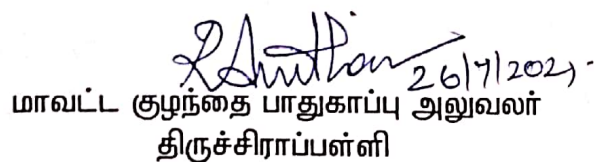 26/7/2021
மாவட்ட குழந்தை பாதுகாப்பு அலுவலர்
திருச்சிராப்பள்ளி